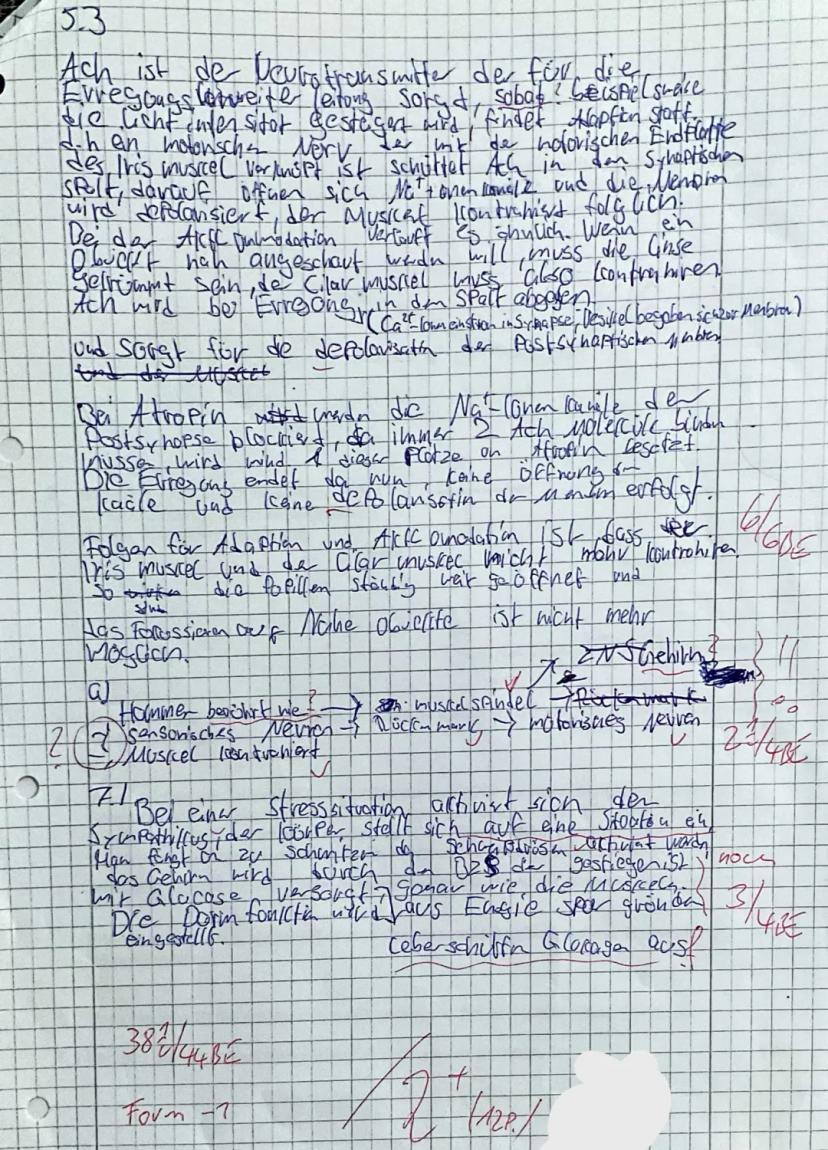 5.3
Ach ist de Neurotransmitter der für die
Erregungs leitung sorgt, sobald beispielsweise
die Licht intensität gesteigert wird, findet statt.
d.h ein motorischer Nerv der mit der motorischen Endplatte
des Iris muskel verknüpft ist schüttet Ach in den synaptischen
Spalt, darauf öffnen sich Na⁺ Ionenkanäle und die Membran
wird depolarisiert, der Muskel kontrahiert folglich.
Bei der Akkomodation verläuft es ähnlich. Wenn ein
Objekt nah angeschaut werden will, muss die Linse
gekrümmt sein, de Ciliar muskel muss also kontrahieren
Ach wird bei Erregung in den Spalt abgegeben
(Ca²⁺-Ionen in Synapse, Vesikel begeben sich zur Membran)
und sorgt für die depolarisation der Postsynaptischen Membran
und der Muskel
Bei Atropin werden die Na⁺-Ionenkanäle der
Postsynapse blockiert, da immer 2 Ach Moleküle binden
müssen, wird 1 dieser Plätze von Atropin besetzt.
Die Erregung endet da nun, keine Öffnung der
Kanäle und keine depolarisation der Membran erfolgt.
6/6BE
Folgen für Adaption und Akkomodation ist dass der
Iris muskel und der Ciliar muskel nicht mehr kontrahieren
so sind die Pupillen ständig weit geöffnet und
das Fokussieren auf Nahe Objekte ist nicht mehr
möglich.
ZNS Gehirn?
a)
Hammer berührt wie? → muskelspindel → Rückenmark
? sensorisches Neuron → Rückenmark → motorisches Neuron
Muskel kontrahiert
2½/4BE
7.1
Bei einer Stresssituation aktiviert sich der
Sympathikus, der Körper stellt sich auf eine Situation ein
Man fängt an zu schwitzen da Schweißdrüsen aktiviert werden
das Gehirn wird durch den der gestiegen ist noch
mit Glucose versorgt, genau wie die Muskeln.
Die Darm funktion wird aus Energie spar gründen
eingestellt.
3/4BE
Leberschütten Glukagon aus!
38½/44BE
Form -1
2+ (12P.)